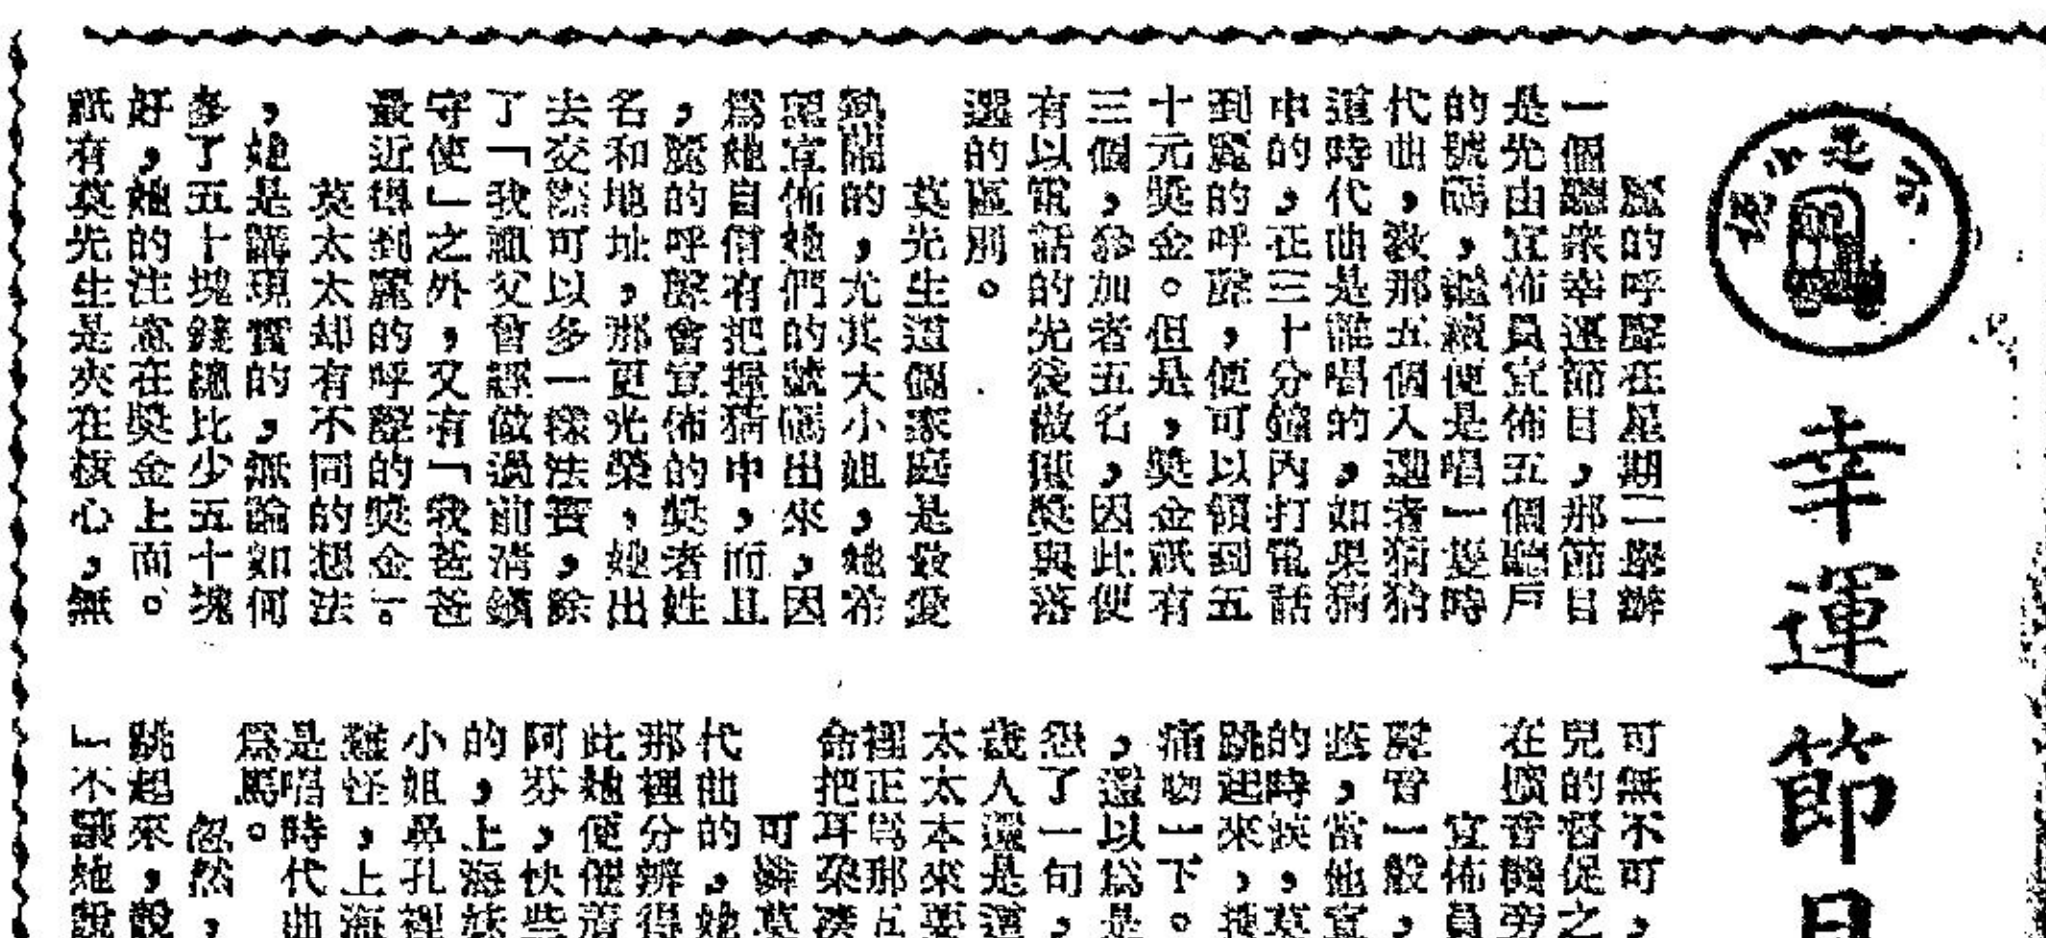 幸運節目
麗的呼聲在星期二舉辦
一個聽眾幸運節目,那節目
是先由宣佈員宣佈五個聽戶
的號碼,繼續便是唱一隻時
代曲,敎那五個人聽者猜猜
這時代曲是誰唱的,如果猜
中的,在三十分鐘內打電話
到麗的呼聲,便可以領到五
十元獎金。但是,獎金祇有
三個,參加者五名,因此便
有以電話的先後做獲獎與落
選的區別。
莫先生這個家庭是最愛
熱鬧的,尤其大小姐,她希
望宣佈她們的號碼出來,因
爲她自信有把握猜中,而且
,麗的呼聲會宣佈的獎者姓
名和地址,那更光榮,她出
去交際可以多一樣法寶,除
了「我祖父曾經做過前清鎮
守使」之外,又有「我爸爸
最近得到麗的呼聲的獎金」。
莫太太却有不同的想法
,她是講現實的,無論如何
多了五十塊錢總比少五十塊
好,她的注意在獎金上面。
祇有莫先生是夾在核心,無
可無不可,
兒的督促之
在擴音機旁
宣佈員
聲音一般,
些,當他宣
的時候,莫
跳起來,擁
痛吻一下。
,還以爲是
怨了一句,
歲人還是這
太太本來要
裡正爲那五
命把耳朶湊
可憐莫
代曲的,她
那裡分辨得
此她便催着
阿芬,快些
的,上海妹
小姐鼻孔裡
難怪,上海
是唱時代曲
爲馬。
忽然,
跳起來,說
」不讓她說